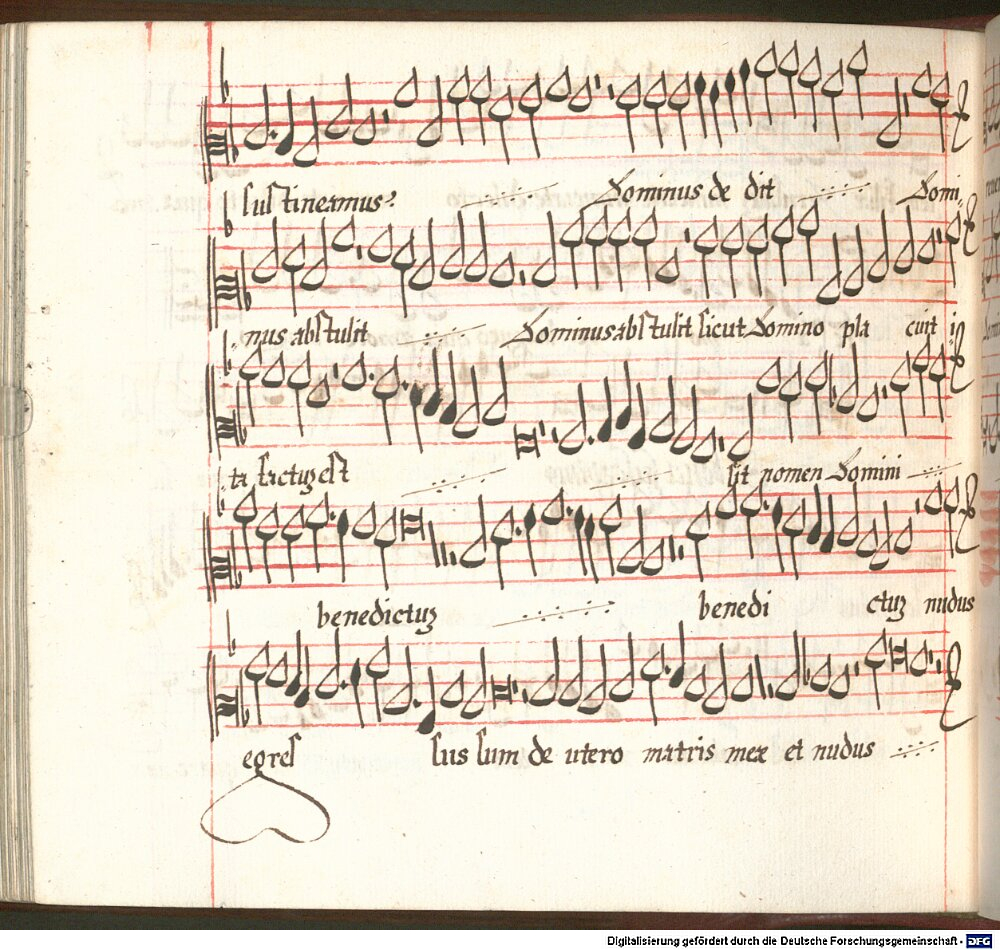 sustineamus? Dominus de dit Domi,
nus abstulit Dominus abstulit sicut Domino pla cuit i
ta factuz est sit nomen Domini
benedictuz benedi ctuz nudus
egres sus sum de utero matris mex et nudus
Digitalisierung gefördert durch die Deutsche Forschungsgemeinschaft - DFG